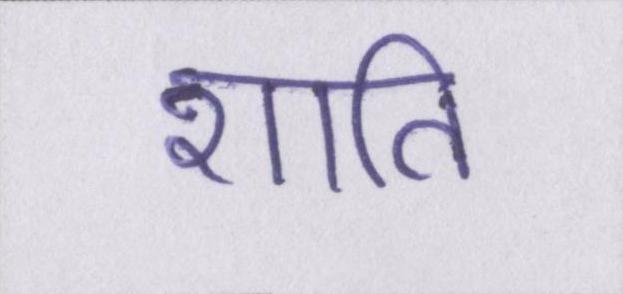 शाति